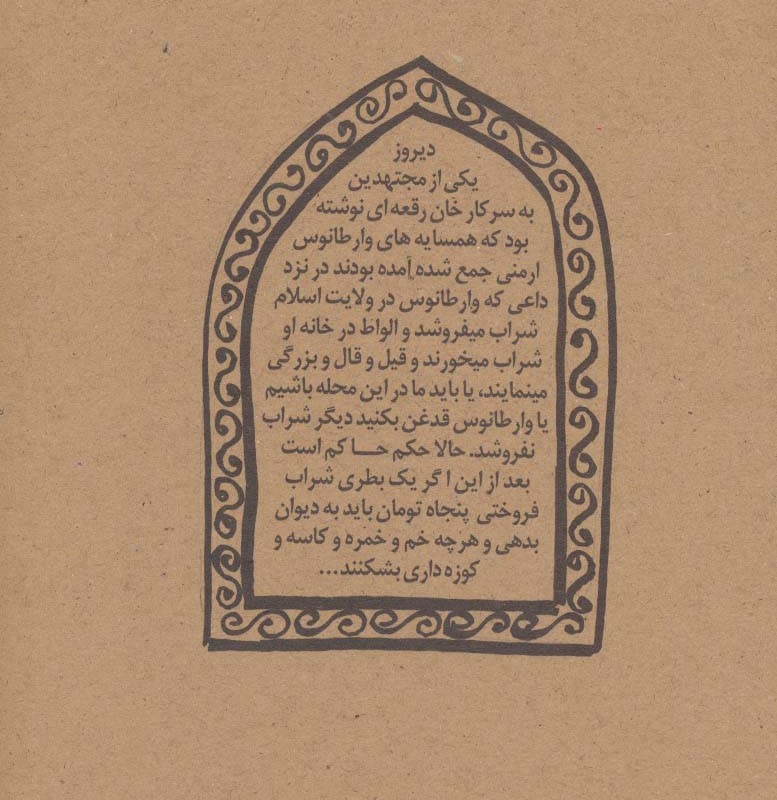 دیروز
یکی از مجتهدین
به سرکار خان رقعه ای نوشته
بود که همسایه های وارطانوس
ارمنی جمع شده آمده بودند در نزد
داعی که وارطانوس در ولایت اسلام
شراب میفروشد و الواط در خانه او
شراب میخورند و قیل و قال و بزرگی
مینمایند، یا باید ما در این محله باشیم
یا وارطانوس قدغن بکنید دیگر شراب
نفروشد. حالا حکم حـــاکم است
بعد از این اگر یک بطری شراب
فروختی پنجاه تومان باید به دیوان
بدهی و هرچه خم و خمره و کاسه و
کوزه داری بشکنند...